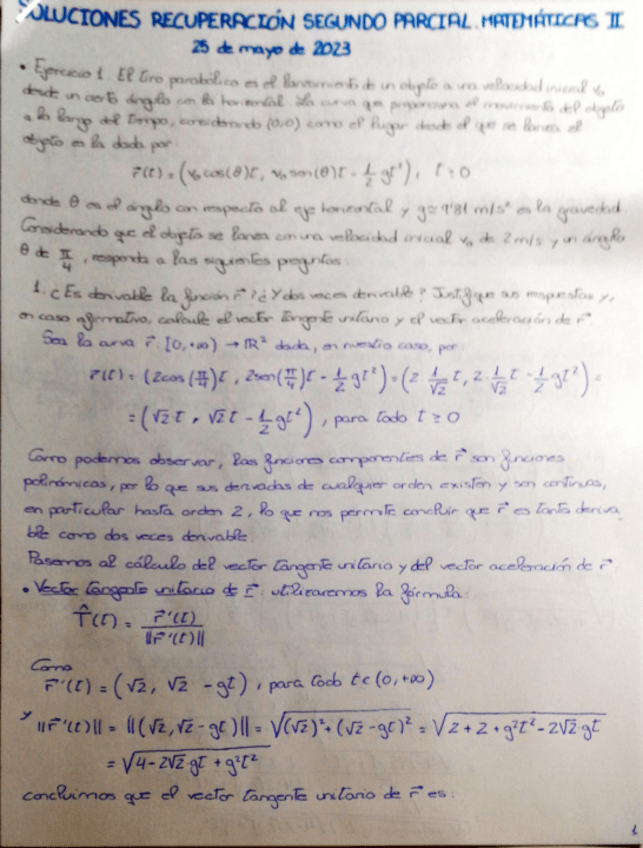 SOLUCIONES RECUPERACIÓN SEGUNDO PARCIAL. MATEMÁTICAS II
25 de mayo de 2023
• Ejercicio 1. El tiro parabólico es el lanzamiento de un objeto a una velocidad inicial v₀
desde un cierto ángulo con la horizontal. La curva que proporciona el movimiento del objeto
a lo largo del tiempo, considerando (0,0) como el lugar desde el que se lanza el
objeto es la dada por:
r⃗(t) = (v₀ cos(θ)t, v₀ sen(θ)t - 1/2 gt²), t ≥ 0
donde θ es el ángulo con respecto al eje horizontal y g ≃ 9'81 m/s² es la gravedad.
Considerando que el objeto se lanza con una velocidad inicial v₀ de 2 m/s y un ángulo
θ de π/4, responda a las siguientes preguntas:
1. ¿Es derivable la función r⃗? ¿Y dos veces derivable? Justifique sus respuestas y,
en caso afirmativo, calcule el vector tangente unitario y el vector aceleración de r⃗.
Sea la curva r⃗: [0,+∞) → ℝ² dada, en nuestro caso, por:
r⃗(t) = (2cos(π/4)t, 2sen(π/4)t - 1/2 gt²) = (2·1/√2 t, 2·1/√2 t - 1/2 gt²) =
= (√2 t, √2 t - 1/2 gt²), para todo t ≥ 0
Como podemos observar, las funciones componentes de r⃗ son funciones
polinómicas, por lo que sus derivadas de cualquier orden existen y son continuas,
en particular hasta orden 2, lo que nos permite concluir que r⃗ es tanto deriva
ble como dos veces derivable.
Pasemos al cálculo del vector tangente unitario y del vector aceleración de r⃗.
• Vector tangente unitario de r⃗: utilizaremos la fórmula:
T̂(t) = r⃗'(t) / ||r⃗'(t)||
Como
r⃗'(t) = (√2, √2 - gt), para todo t ∈ (0,+∞)
y ||r⃗'(t)|| = ||(√2, √2 - gt)|| = √((√2)² + (√2 - gt)²) = √(2 + 2 + g²t² - 2√2 gt)
= √(4 - 2√2 gt + g²t²)
concluimos que el vector tangente unitario de r⃗ es:
1